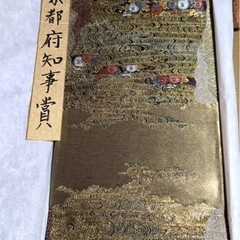 京都府知事賞